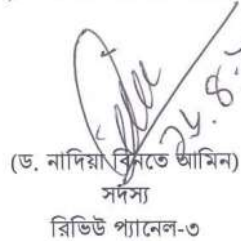 ২৮.৪
(ড. নাদিয়া বিনতে আমিন)
সদস্য
রিভিউ প্যানেল-৩